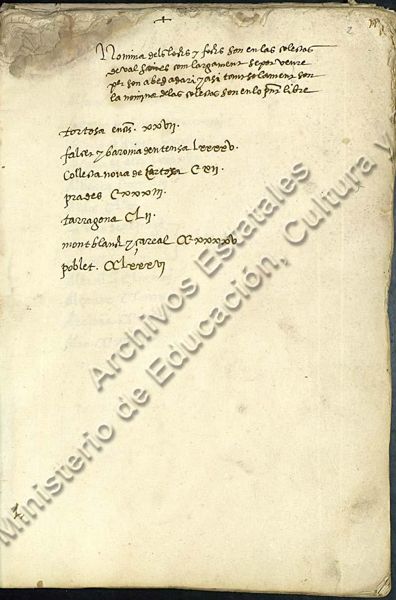 2
Nomina dels lochs y fochs son en las colectas
devall scrites com largament se pot veure
per son abcdari y açi tant solament son
la nomina de las colectas son en lo pnt libre
tortosa en XXVII.
falcet y baronia dentensa LXXXXV.
Collecta nova de CXII
prades CXXXIII
tarragona CLII.
montblanch y sareal CCXXXXV
poblet. CCLXXXVI
Archivos Estatales
Ministerio de Educación, Cultura y